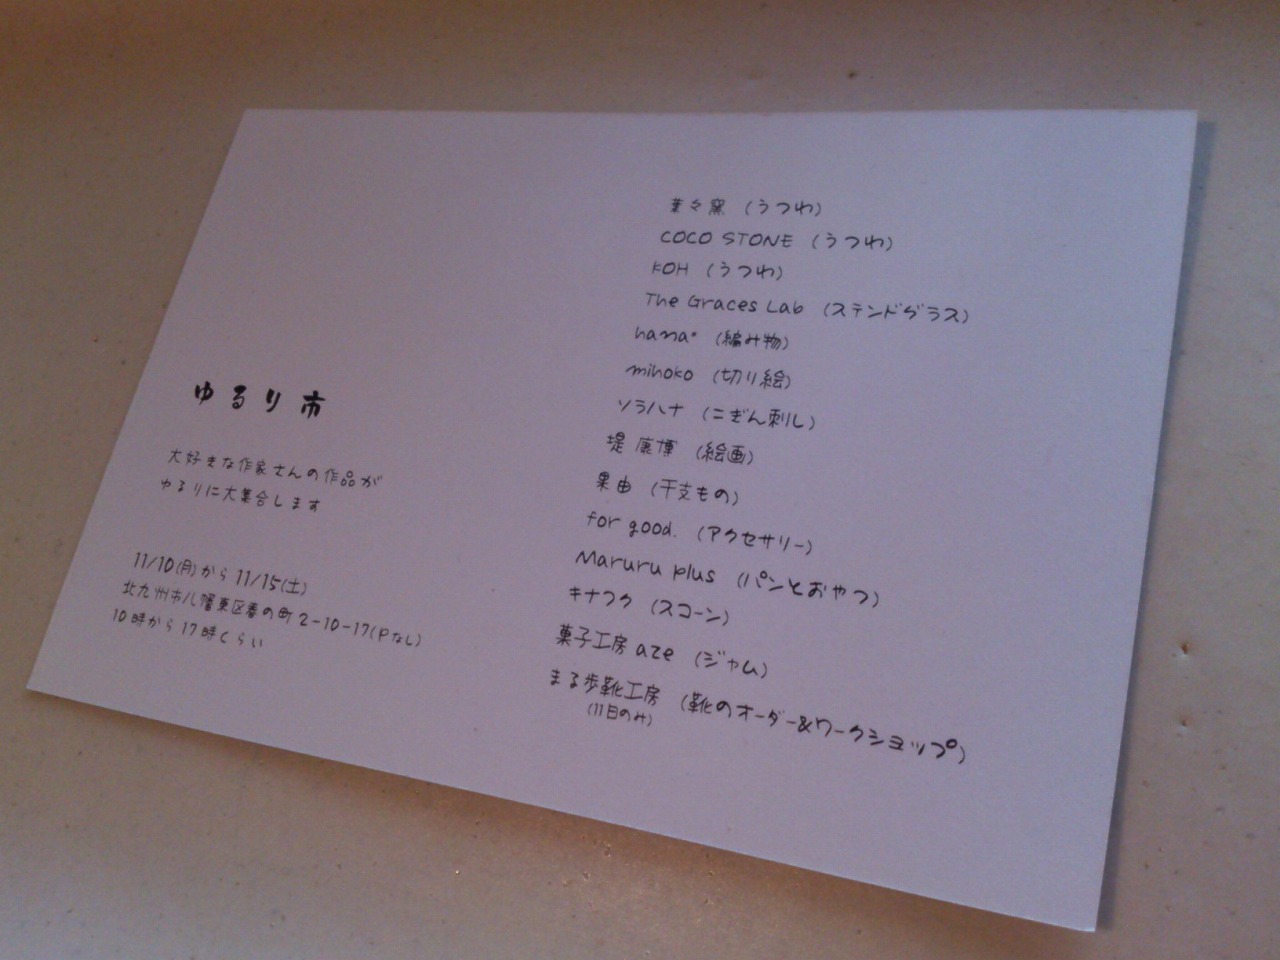 ゆるり市
大好きな作家さんの作品が
ゆるりに大集合します
11/10(月)から11/15(土)
北九州市八幡東区春の町2-10-17(Pなし)
10時から17時くらい
葉々窯 (うつわ)
COCO STONE (うつわ)
KOH (うつわ)
The Graces Lab (ステンドグラス)
hama* (編み物)
mihoko (切り絵)
ソラハナ (こぎん刺し)
堤 康博 (絵画)
果由 (干支もの)
for good. (アクセサリー)
Maruru plus (パンとおやつ)
キナフク (スコーン)
菓子工房 aze (ジャム)
まる歩靴工房 (靴のオーダー&ワークショップ)
(11日のみ)